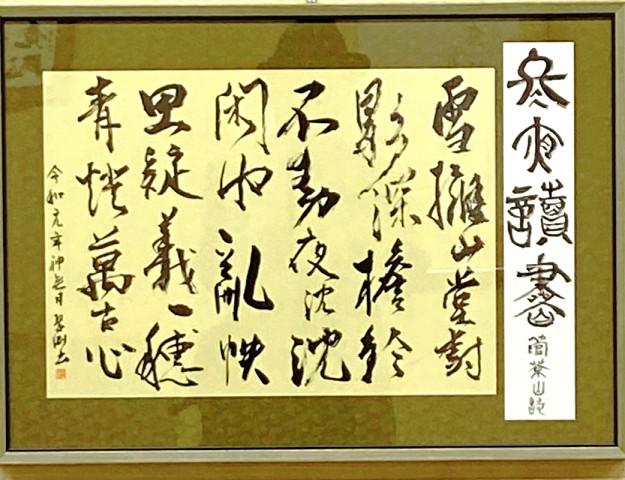 冬夜讀書 菅茶山詩
雪擁山堂樹
影深檐鈴
不動夜沈沈
閑收亂帙
思疑義一穗
青燈萬古心
令和元年神無月